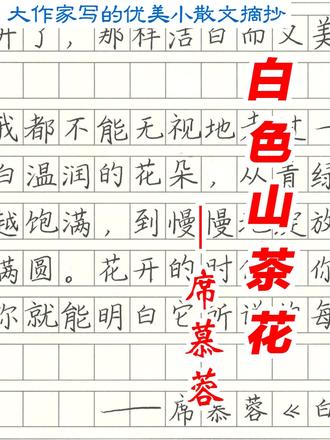 大作家写的优美小散文摘抄
白色山茶花
—席慕蓉
开了，那样洁白而又美
我都不能无视地走过一
白温润的花朵，从青绿
越饱满，到慢慢绽放
满圆。花开的时你
你就能明白它所说每
——席慕蓉《白